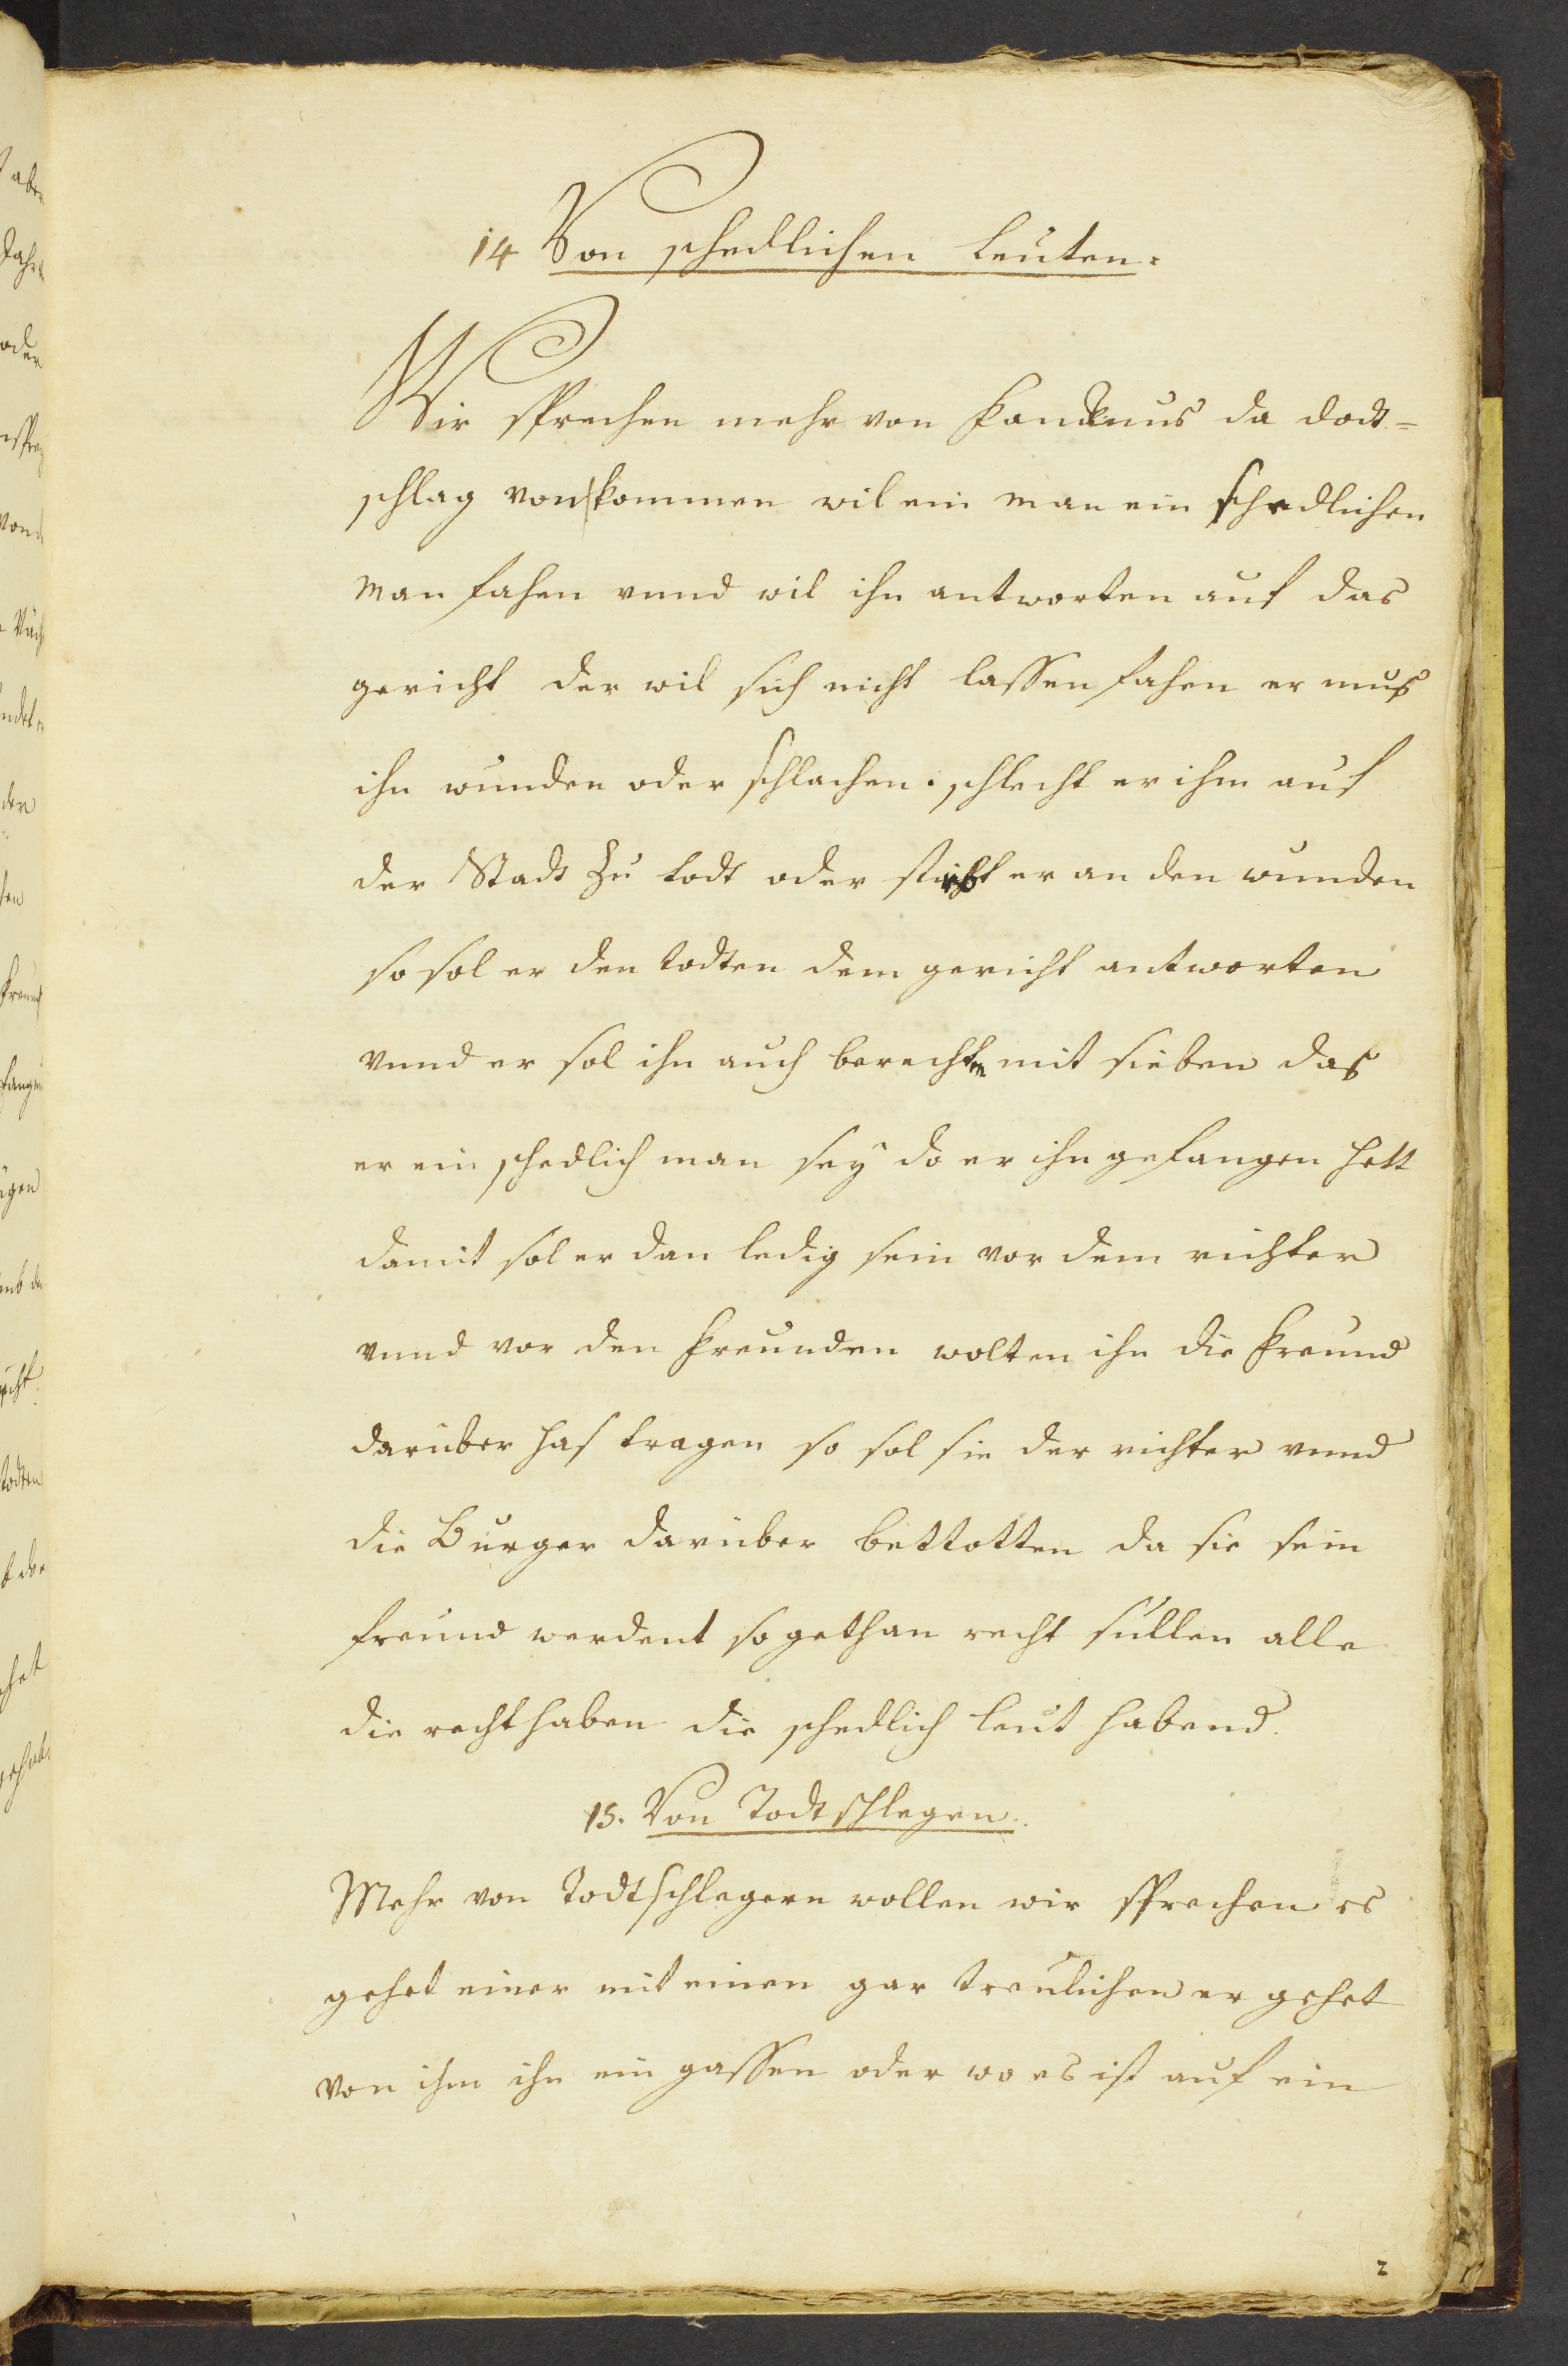 14 Von schedlichen Leuten.
Wir sprechen mehr von Fancknus da dodt=
schlag von kommen wil ein man ein schedlichen
man fahen vnnd wil ihn antworten auf das
gericht der wil sich nicht lassen fahen er mus
ihn wunden oder schlachen. schlecht er ihm auf
der Stadt zu todt oder stirbt er an den wunden
so sol er den todten dem gericht antworten
vnnd er sol ihn auch berechten mit sieben das
er ein schedlich man sey do er ihn gefangen hett
damit sol er dan ledig sein vor dem richter
vnnd vor den Freunden wolten ihn die Freund
daruber has tragen so sol sie der richter vnnd
die Burger daruber bettotten da sie sein
freund werdent so gethan recht sullen alle
die recht haben die schedlich leut habend.
15. Von Todtschlegen.
Mehr von Todtschlegern wollen wir sprechen es
gehet einer mit einen gar treulichen er gehet
von ihm ihn ein gassen oder wo es ist auf ein
2